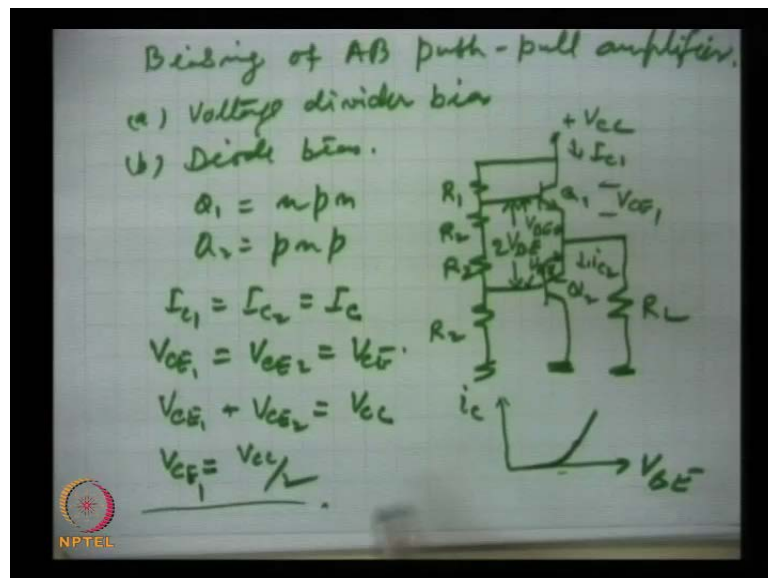 Biasing of AB push-pull amplifier.
(a) Voltage divider bias
(b) Diode bias.
Q₁ = npn
Q₂ = pnp
I_C₁ = I_C₂ = I_C
V_CE₁ = V_CE₂ = V_CE.
V_CE₁ + V_CE₂ = V_CC
V_CE₁ = V_CC/2
+ V_CC
↓ I_C₁
R₁
Q₁
V_CE₁
R₂
2V_BE
R₂
↓ i_C₂
Q₂
R_L
R₂
i_C
V_BE
NPTEL